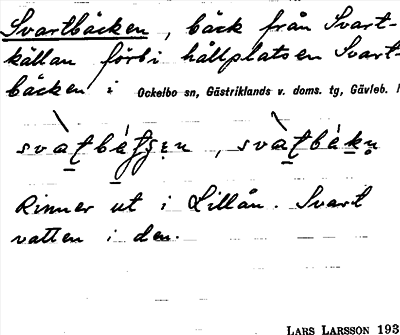 Svartbäcken, bäck från Svart-
källan förbi hållplatsen Svart-
bäcken i Ockelbo sn, Gästriklands v. doms. tg, Gävleb.
Rinner ut i Lillån. Svart
vatten i den.
LARS LARSSON 193